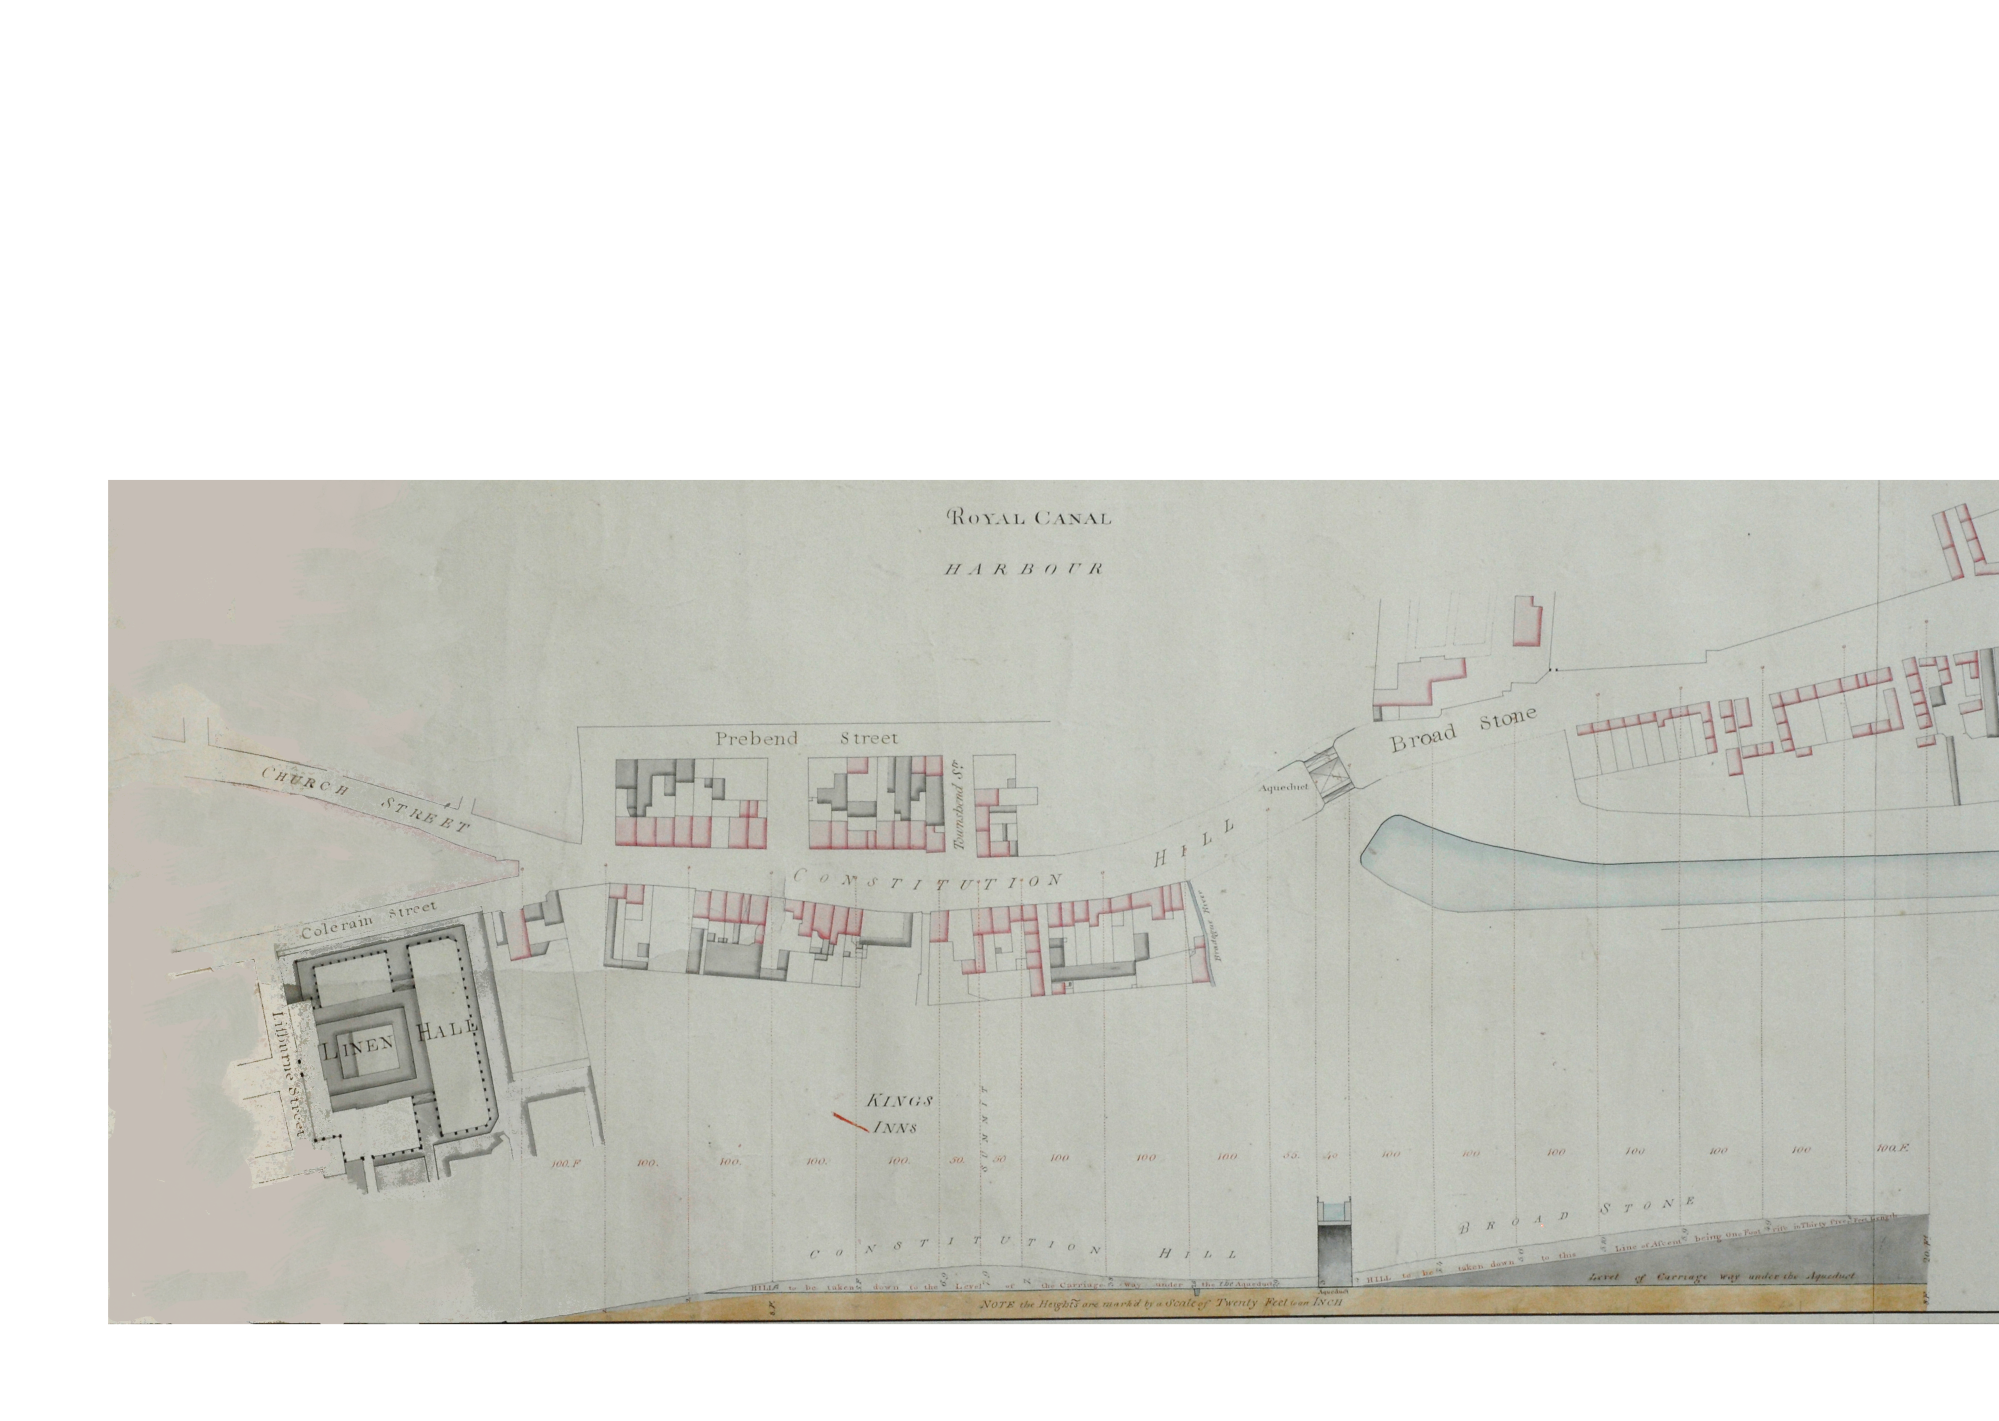 ROYAL CANAL
HARBOUR
Prebend Street
Townshend St.
CHURCH STREET
Broad Stone
Aqueduct
CONSTITUTION HILL
Colerain Street
LINEN HALL
Street
KINGS
INNS
SUMMIT
100.F 100. 100. 100. 100. 50. 50 100 100 100 55. 40 100 100 100 100 100 100 100.F.
BROAD STONE
CONSTITUTION HILL
HILL to be taken down to the Level of the Carriage way under the Aqueduct
HILL to be taken down to this Line of Ascent being One Foot rise in Thirty Five Feet length
Level of Carriage way under the Aqueduct
Aqueduct
NOTE the Heights are mark'd by a Scale of Twenty Feet to an INCH